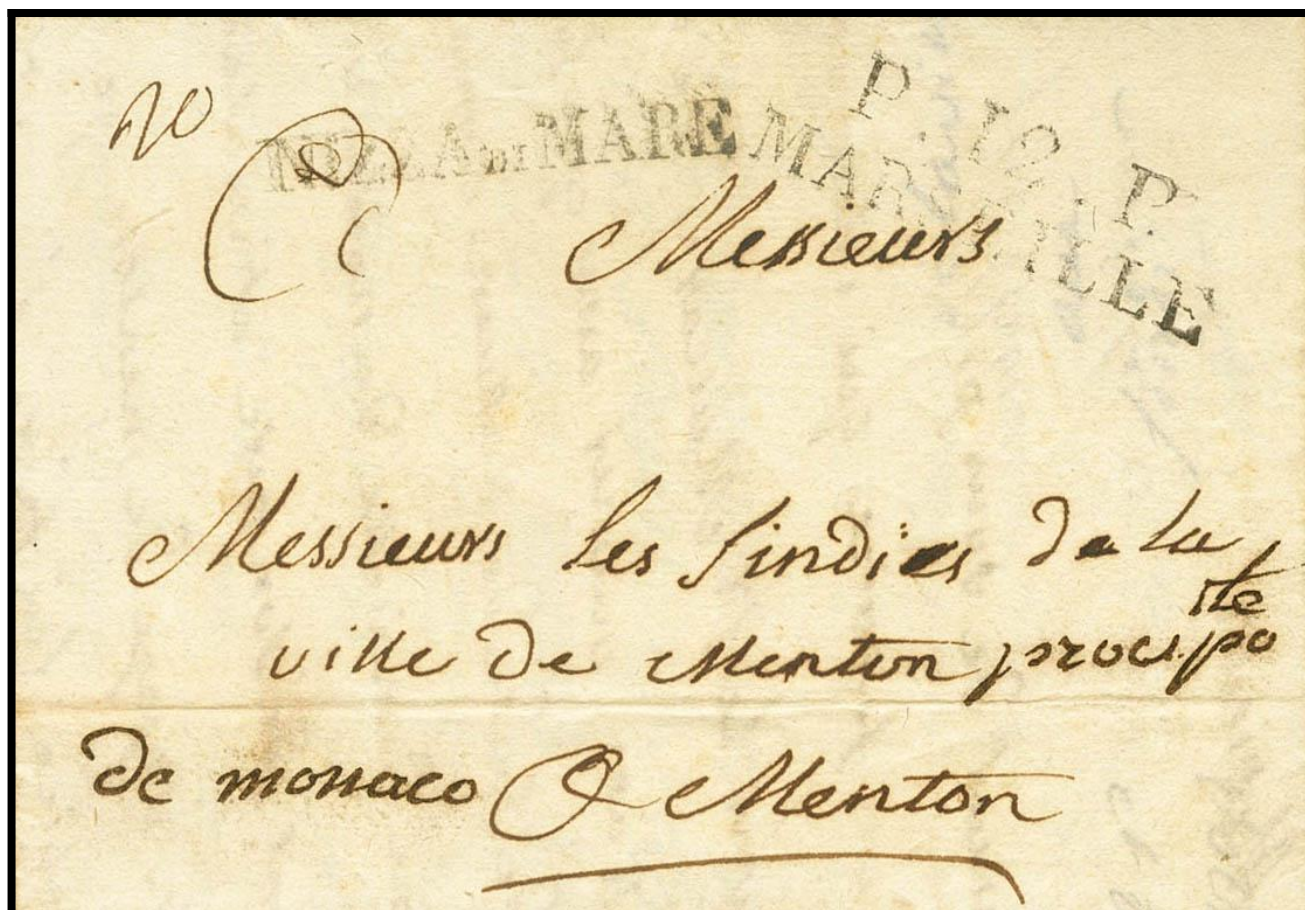 20
NIZZA DI MARE
P. 12 P.
MARSEILLE
A Messieurs
Messieurs les sindics de la
ville de Menton
de monaco A Menton